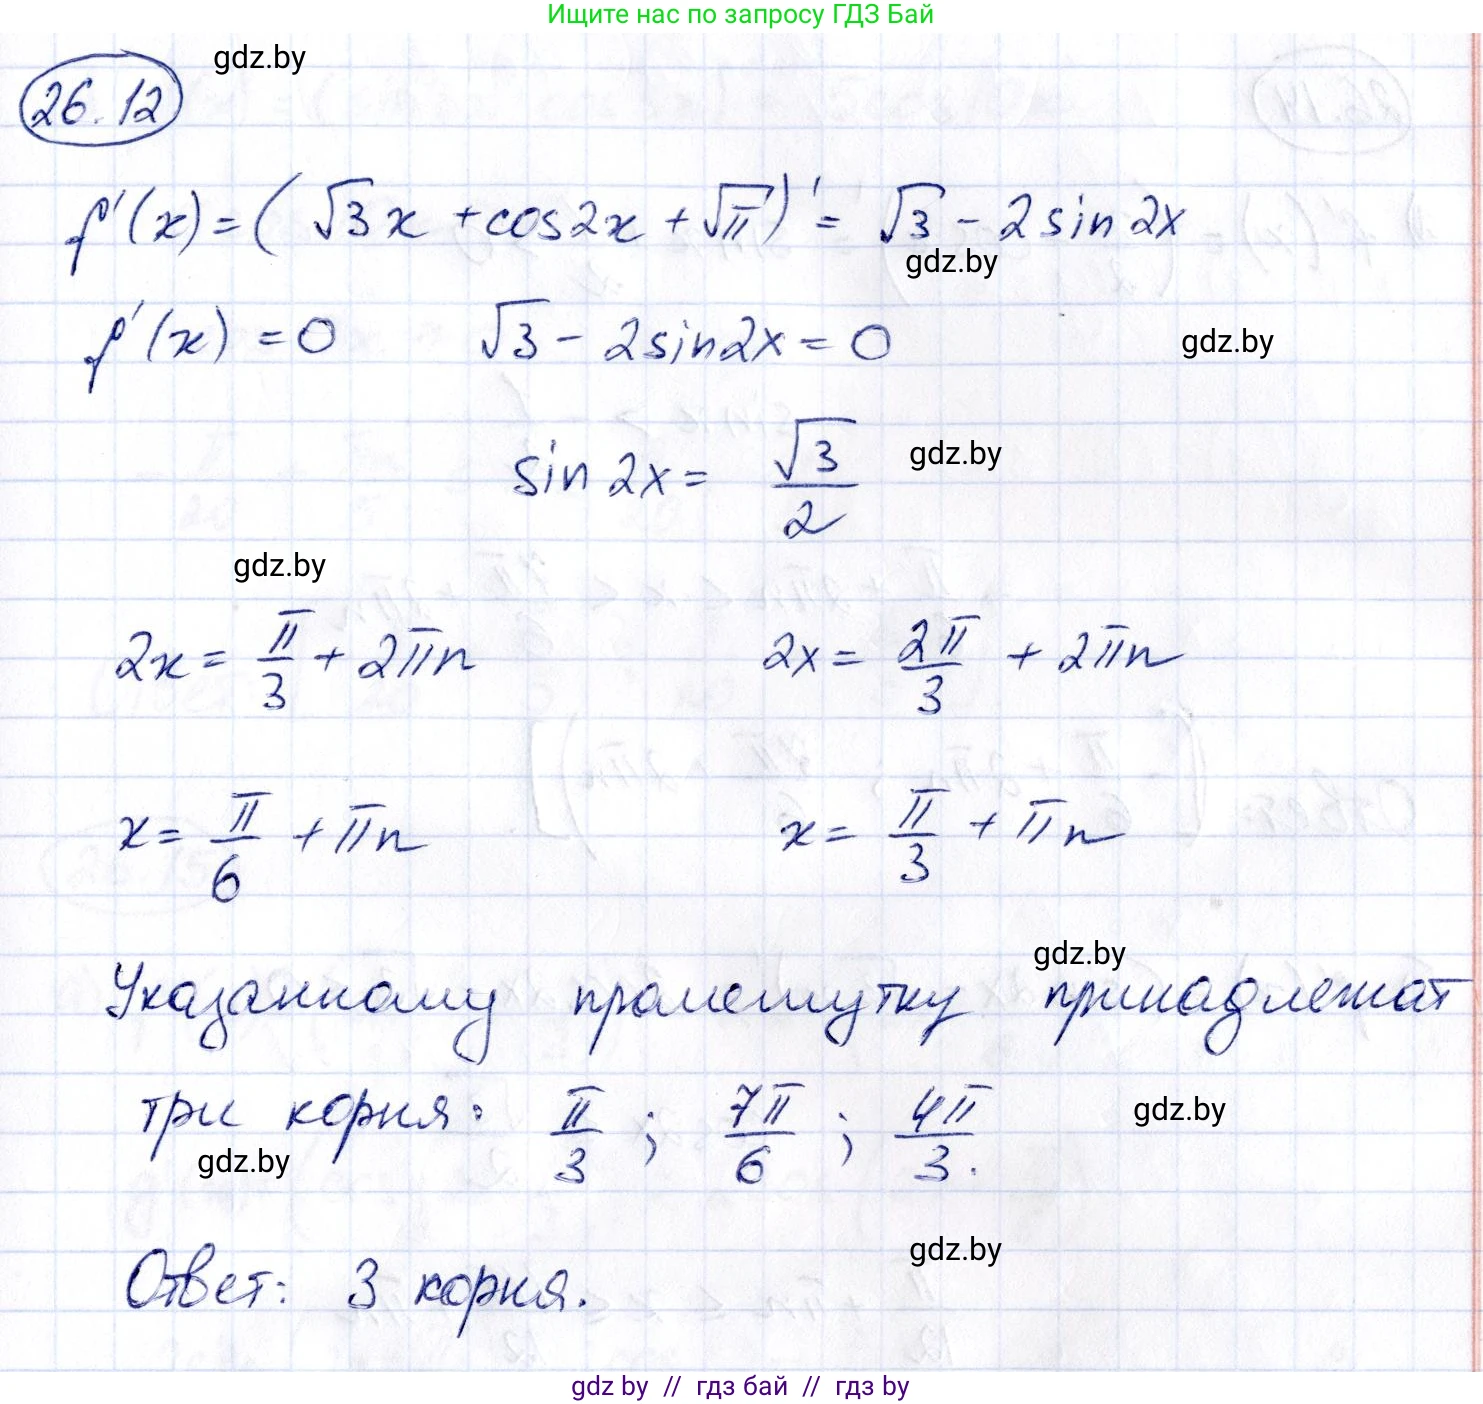 Ищите нас по запросу ГДЗ Бай
gdz.by
26.12
f'(x) = (√3x + cos2x + √π)' = √3 - 2sin2x
gdz.by
f'(x) = 0 √3 - 2sin2x = 0
gdz.by
sin2x = √3/2
gdz.by
gdz.by
2x = π/3 + 2πn 2x = 2π/3 + 2πn
x = π/6 + πn x = π/3 + πn
gdz.by
Указанному промежутку принадлежат
три корня: π/3 ; 7π/6 ; 4π/3.
gdz.by
gdz.by
gdz.by
Ответ: 3 корня.
gdz by // гдз бай // гдз by